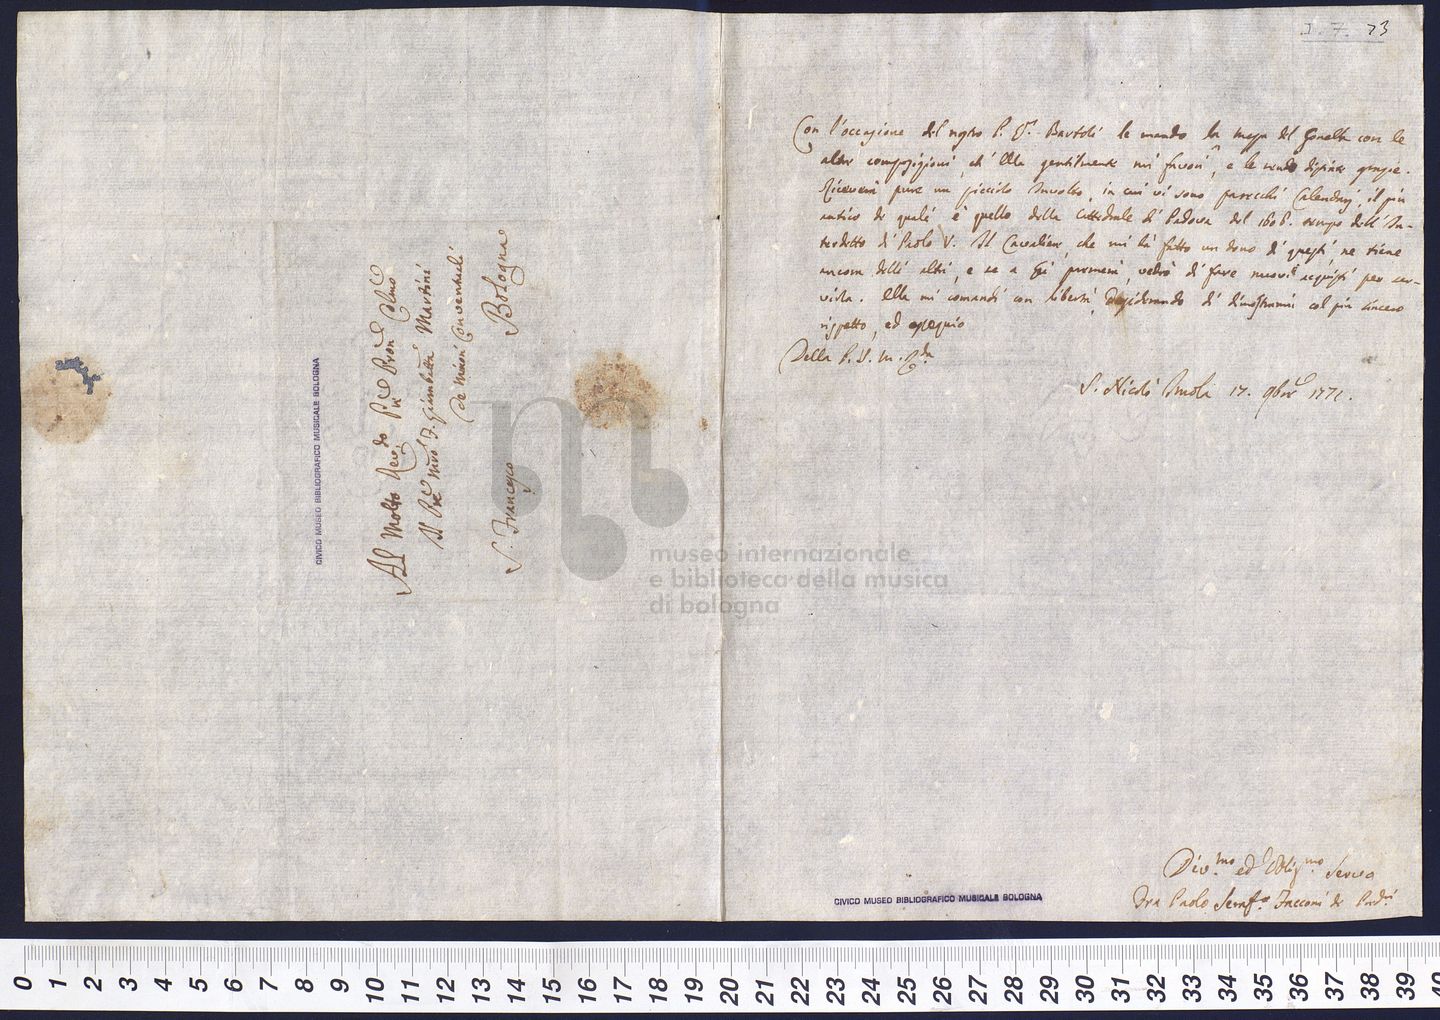 I. 7. 73
Con l'occasione del nostro P. Bartoli le mando la messa del Gonella con le
altre composizioni, ch'Ella gentilmente mi favorì, e le rendo distinte grazie.
Riceverà pure un piccolo Involto, in cui vi sono parecchi Calendarj, il più
antico de quali è quello della Cattedrale di Padova del 1606. tempo dell'In-
terdetto di Paolo V. Il Cavaliere, che mi ha fatto un dono di questi, ne tiene
ancora delli altri, e se a Lei premerà, vedrò di fare nuovi acquisti per ser-
virla. Ella mi comandi con libertà, desiderando di dimostrarmi col più sincero
rispetto, ed ossequio
Della P. V. M. Rda
S. Nicolò Imola 17. 9bre 1771.
Div.mo ed Obblig.mo Servo
Fra Paolo Seraf.o Facconi de Pred.i
Al Molto Revdo Pre Pron Colmo
Il Pre Mro F. Giambatta Martini
de Minori Conventuali
S. Francesco Bologna
CIVICO MUSEO BIBLIOGRAFICO MUSICALE BOLOGNA
CIVICO MUSEO BIBLIOGRAFICO MUSICALE BOLOGNA
museo internazionale
e biblioteca della musica
di bologna
0 1 2 3 4 5 6 7 8 9 10 11 12 13 14 15 16 17 18 19 20 21 22 23 24 25 26 27 28 29 30 31 32 33 34 35 36 37 38 39 40